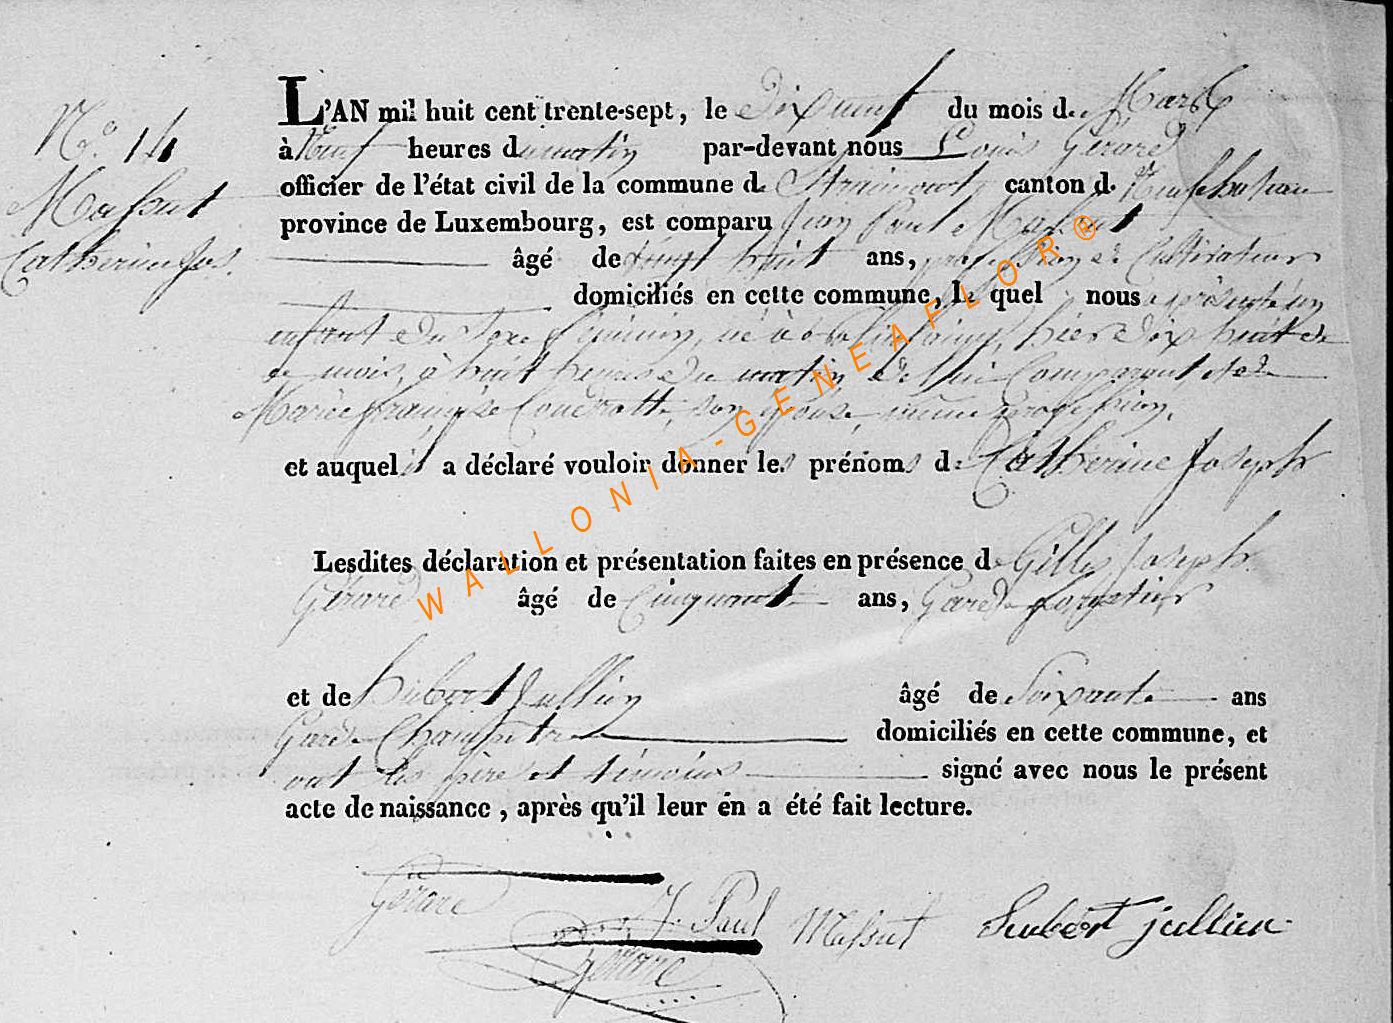 N.° 14
Massut
Catherine Jos.
L'AN mil huit cent trente-sept, le dix neuf du mois de Mars
à Neuf heures du matin par-devant nous Louis Gérard
officier de l'état civil de la commune de Straimont, canton de Neufchateau
province de Luxembourg, est comparu Jean Paul Massut
âgé de vingt huit ans, profession de Cultivateur
domiciliés en cette commune, le quel nous a présenté un
enfant du Sexe féminin, né à hier dix huit de
ce mois, à huit heures du matin de lui Comparant et de
Marie françoise son épouse, même profession,
et auquel il a déclaré vouloir donner les prénoms de Catherine Joseph
Lesdites déclaration et présentation faites en présence de Gilles Joseph
Gérard âgé de Cinquante ans, Garde forestier
et de hubert Jullien âgé de Soixante ans
Garde Champêtre domiciliés en cette commune, et
ont les père et témoins signé avec nous le présent
acte de naissance, après qu'il leur en a été fait lecture.
Gérard
J. Paul Massut hubert jullien
Gérard
WALLONIA-GENEAFLOR®